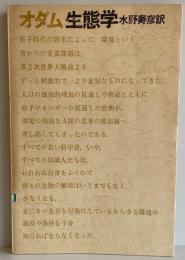 オダム 生態学 水野寿彦訳
原子時代の到来によって、環境という
昔からの重要課題は、
第2次世界大戦前より
ずっと刺激的で、より重要なものになってきた。
人口の爆発的増加の見通しや脅威とともに
原子エネルギーの見通しや恐怖が、
環境の問題を人間の思考の最前線へ
押し出してしまったのである。
すべての若い科学者、いや、
すべての知識人たちは、
われわれ自身をふくめて
個々の生物の繁栄はいうまでもなく、
少なくとも、
更にその生存を可能にしているあらゆる環境の
過程や条件を十分
知らねばならなくなった。